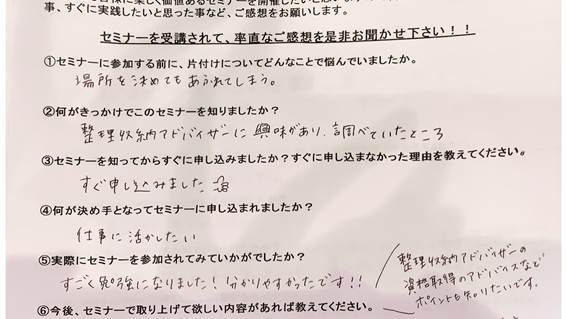 事、すぐに実践したいと思った事など、ご感想をお願いします。
セミナーを受講されて、率直なご感想を是非お聞かせ下さい！！
①セミナーに参加する前に、片付けについてどんなことで悩んでいましたか。
場所を決めてもあふれてしまう。
②何がきっかけでこのセミナーを知りましたか？
整理収納アドバイザーに興味があり、調べていたところ
③セミナーを知ってからすぐに申し込みましたか？すぐに申し込まなかった理由を教えてください。
すぐ申し込みました
④何が決め手となってセミナーに申し込まれましたか？
仕事に活かしたい
⑤実際にセミナーを参加されてみていかがでしたか？
すごく勉強になりました！分かりやすかったです！！
整理収納アドバイザーの
資格取得のアドバイスなど
ポイントも知りたいです。
⑥今後、セミナーで取り上げて欲しい内容があれば教えてください。